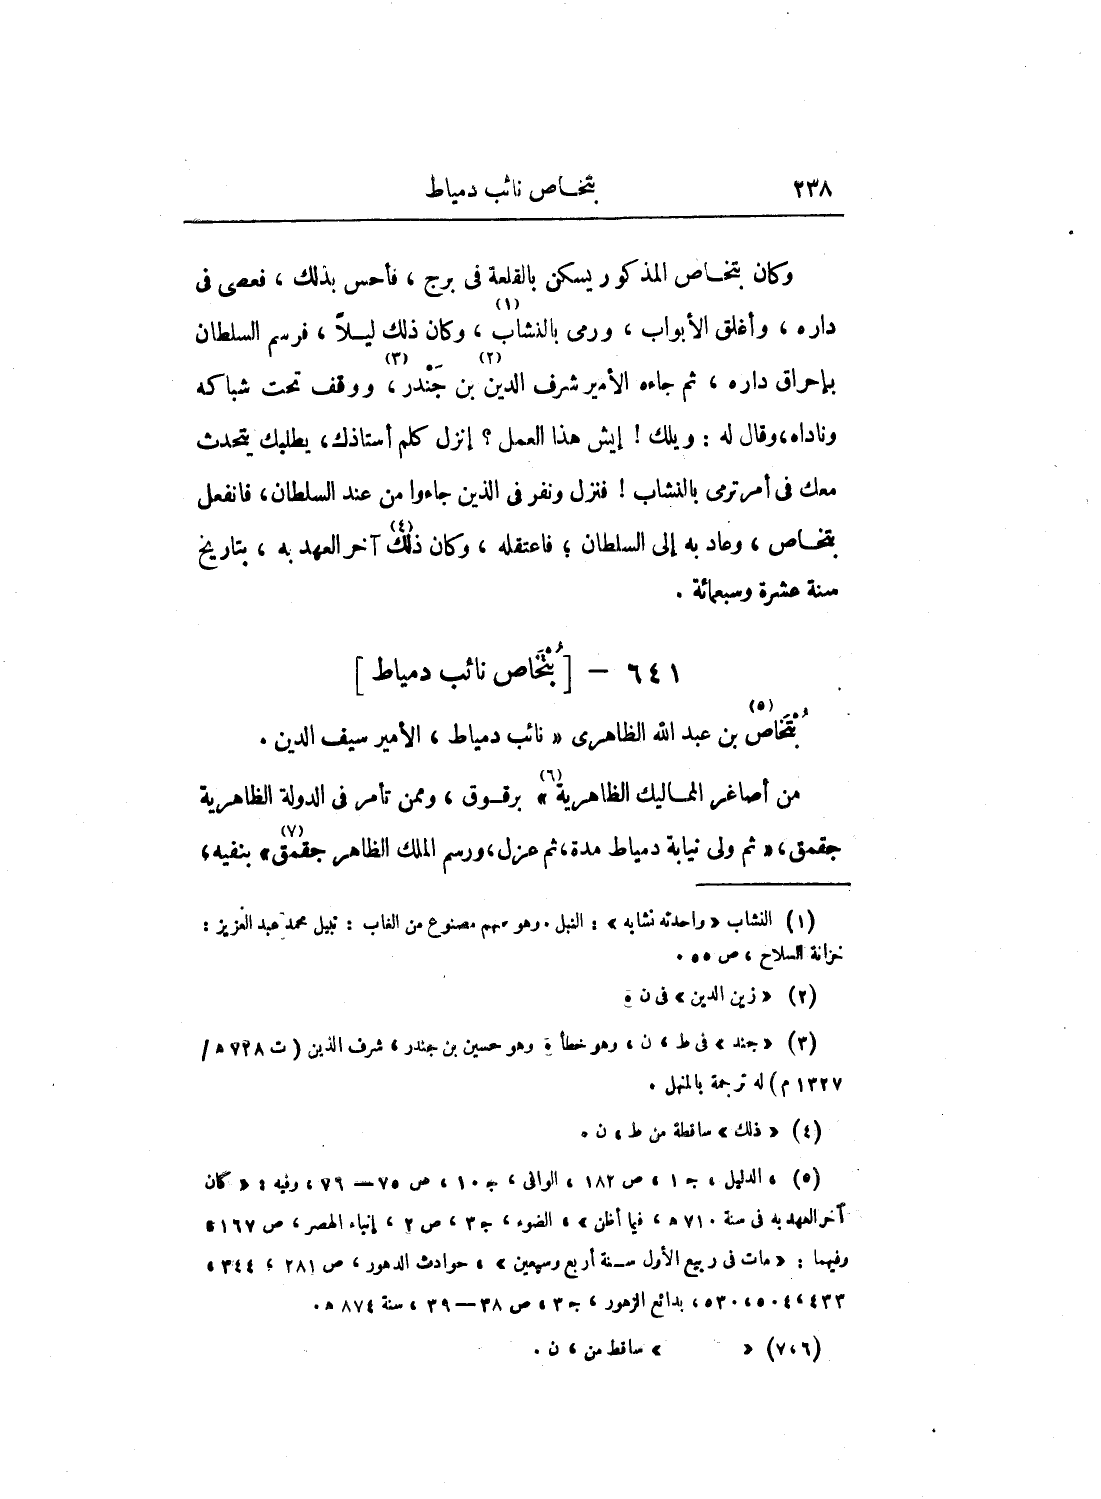 ٢٣٨ بتخاص نائب دمياط
وكان بتخاص المذكور يسكن بالقلعة فى برج ، فأحس بذلك ، فعصى فى
داره ، وأغلق الأبواب ، ورمى بالنشاب (١) ، وكان ذلك ليلاً ، فرسم السلطان
بإحراق داره ، ثم جاءه الأمير شرف الدين (٢) بن جَنْدر (٣) ، ووقف تحت شباكه
وناداه، وقال له : ويلك ! إيش هذا العمل ؟ إنزل كلم أستاذك، يطلبك يتحدث
معك فى أمر ترمى بالنشاب ! فنزل ونفر فى الذين جاءوا من عند السلطان، فانفعل
بتخاص ، وعاد به إلى السلطان ؛ فاعتقله ، وكان ذلك (٤) آخر العهد به ، بتاريخ
سنة عشرة وسبعمائة .
٦٤١ – [ بُتْخَاص نائب دمياط ]
بُتْخَاص (٥) بن عبد الله الظاهرى « نائب دمياط ، الأمير سيف الدين .
من أصاغر المماليك الظاهرية » (٦) برقوق ، وممن تأمر فى الدولة الظاهرية
جقمق، « ثم ولى نيابة دمياط مدة، ثم عزل، ورسم الملك الظاهر جقمق » (٧) بنفيه،
(١) النشاب « واحدته نشابه » : النبل . وهو سهم مصنوع من الغاب : نبيل محمد عبد العزيز :
خزانة السلاح ، ص ٥٥ .
(٢) « زين الدين » فى ن ؤ
(٣) « جند » فى ط ، ن ، وهو خطأ ؤ وهو حسين بن جندر ، شرف الدين ( ت ٧٢٨ ه /
١٣٢٧ م ) له ترجمة بالمنهل .
(٤) « ذلك » ساقطة من ط ، ن .
(٥) ، الدليل ، ج ١ ، ص ١٨٢ ، الوافى ، ج ١٠ ، ص ٧٥ – ٧٦ ، وفيه : « كان
آخر العهد به فى سنة ٧١٠ ه ، فيما أظن » ، الضوء ، ج ٣ ، ص ٢ ، إنباء الهصر ، ص ١٦٧ ،
وفيهما : « مات فى ربيع الأول سنة أربع وسبعين » ، حوادث الدهور ، ص ٢٨١ ، ٣٤٤ ،
٤٣٣ ، ٥٠٤ ، ٥٣٠ ، بدائع الزهور ، ج ٣ ، ص ٣٨ – ٣٩ ، سنة ٨٧٤ ه .
(٧،٦) « » ساقط من ، ن .